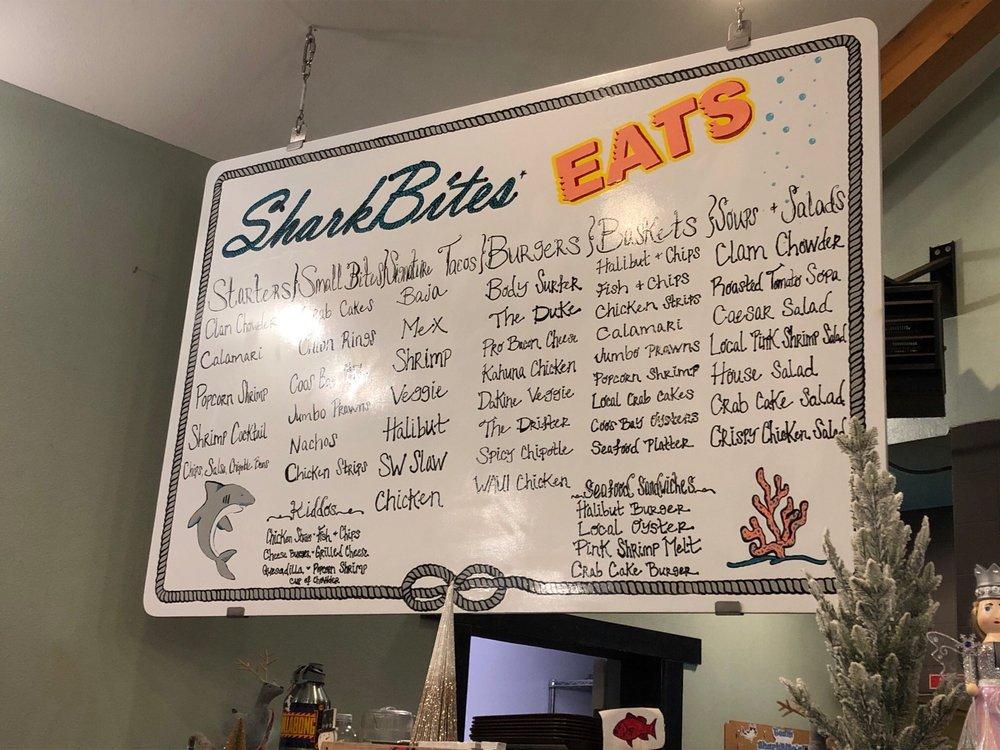 SharkBites EATS
Starters
Clam Chowder
Calamari
Popcorn Shrimp
Shrimp Cocktail
Chips, Salsa, Chipotle Beans
Small Bites
Crab Cakes
Onion Rings
Coos Bay
Jumbo Prawns
Nachos
Chicken Strips
Kiddos
Chicken Strips · Fish + Chips
Cheese Burger · Grilled Cheese
Quesadilla · Popcorn Shrimp
Cup of Chowder
Signature Tacos
Baja
Mex
Shrimp
Veggie
Halibut
SW Slaw
Chicken
Burgers
Body Surfer
The Duke
Pro Bacon Cheese
Kahuna Chicken
Dakine Veggie
The Drifter
Spicy Chipotle
WAUI Chicken
Baskets
Halibut + Chips
Fish + Chips
Chicken Strips
Calamari
Jumbo Prawns
Popcorn Shrimp
Local Crab Cakes
Coos Bay Oysters
Seafood Platter
Seafood Sandwiches
Halibut Burger
Local Oyster
Pink Shrimp Melt
Crab Cake Burger
Soups + Salads
Clam Chowder
Roasted Tomato Sopa
Caesar Salad
Local Pink Shrimp Salad
House Salad
Crab Cake Salad
Crispy Chicken Salad
BILLABONG